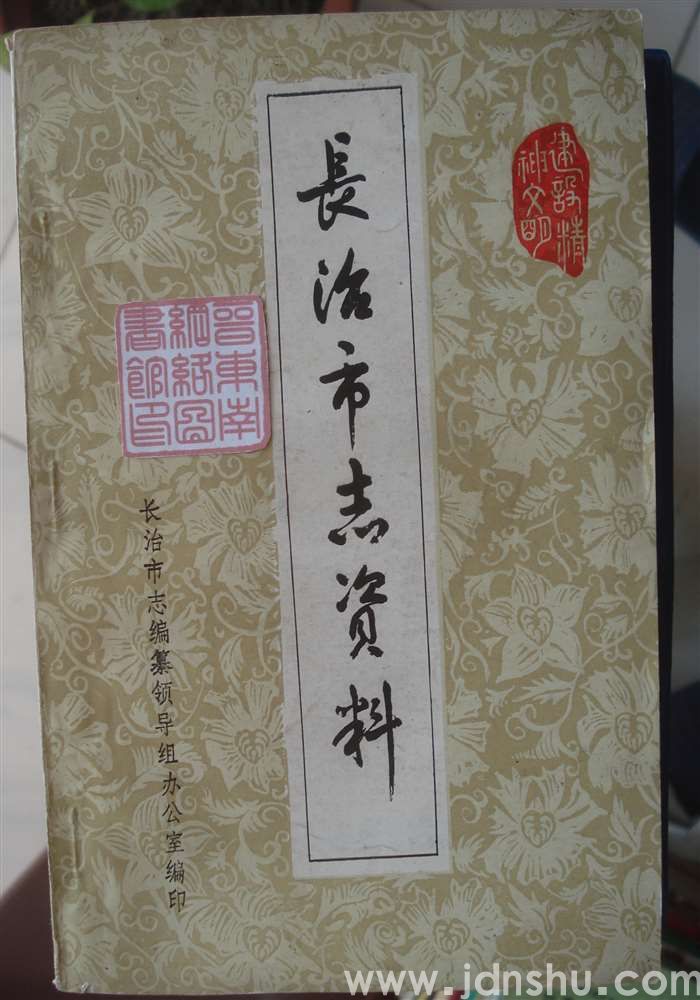 長治市志資料
建設精
神文明
晋東南
網絡圖
書館印
长治市志编纂领导组办公室编印
www.jdnshu.com